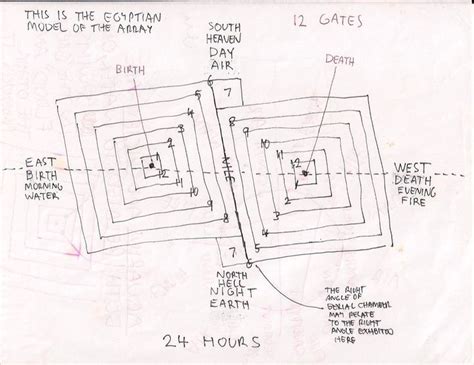 THIS IS THE EGYPTIAN
MODEL OF THE ARRAY
SOUTH
HEAVEN
DAY
AIR
12 GATES
BIRTH
DEATH
6
7
5
4
3
2
1
12
11
10
9
8
NILE
8
9
10
11
12
1
2
3
4
5
6
7
EAST
BIRTH
MORNING
WATER
WEST
DEATH
EVENING
FIRE
NORTH
HELL
NIGHT
EARTH
THE RIGHT
ANGLE OF
BURIAL CHAMBER
MAY RELATE
TO THE RIGHT
ANGLE EXHIBITED
HERE
24 HOURS